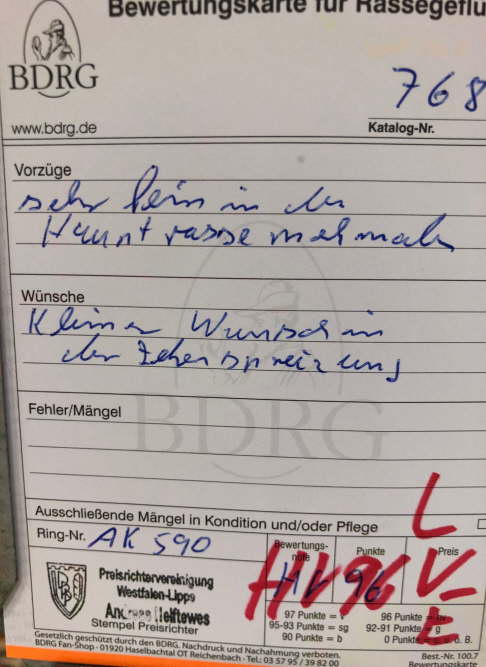 Bewertungskarte für Rassegeflü
BDRG
768
www.bdrg.de
Katalog-Nr.
Vorzüge
sehr fein in den
Hauptrassemerkmalen
Wünsche
Kleiner Wunsch in
der Zehenspreizung
BDRG
Fehler/Mängel
Ausschließende Mängel in Kondition und/oder Pflege
L
Ring-Nr. AK 590
Bewertungs-
note
Punkte
Preis
HV 96
HV 96 V
E
Preisrichtervereinigung
Westfalen-Lippe
Helftewes
Stempel Preisrichter
97 Punkte = v
96 Punkte = hv
95-93 Punkte = sg
92-91 Punkte = g
90 Punkte = b
0 Punkte
Gesetzlich geschützt durch den BDRG. Nachdruck und Nachahmung verboten.
Best.-Nr. 100.7
BDRG Fan-Shop · 01920 Haselbachtal OT Reichenbach · Tel.: 03 57 95 / 39 82 00
Bewertungskarte